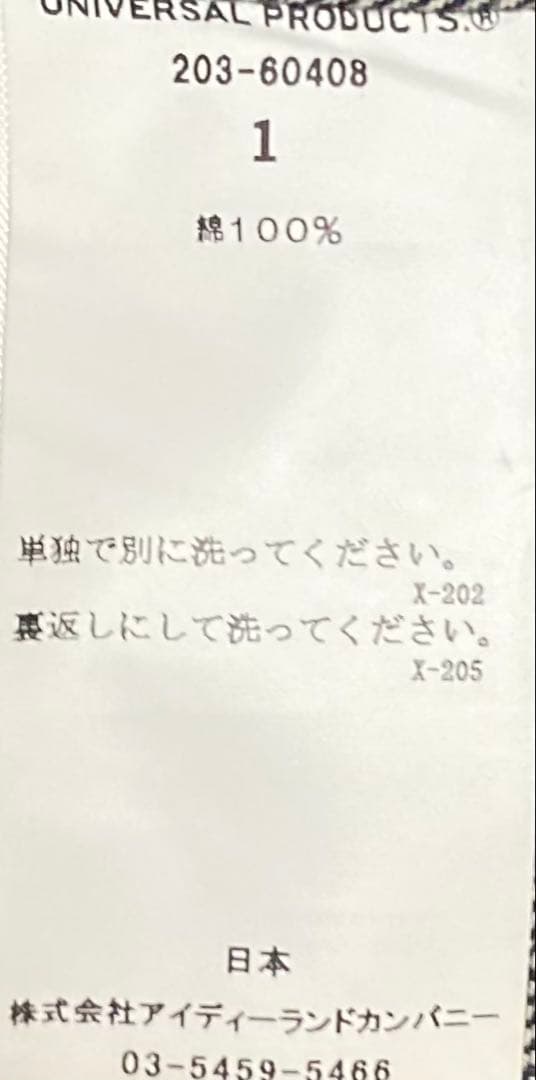 UNIVERSAL PRODUCTS.®
203-60408
1
綿100%
単独で別に洗ってください。
X-202
裏返しにして洗ってください。
X-205
日本
株式会社アイディーランドカンパニー
03-5459-5466